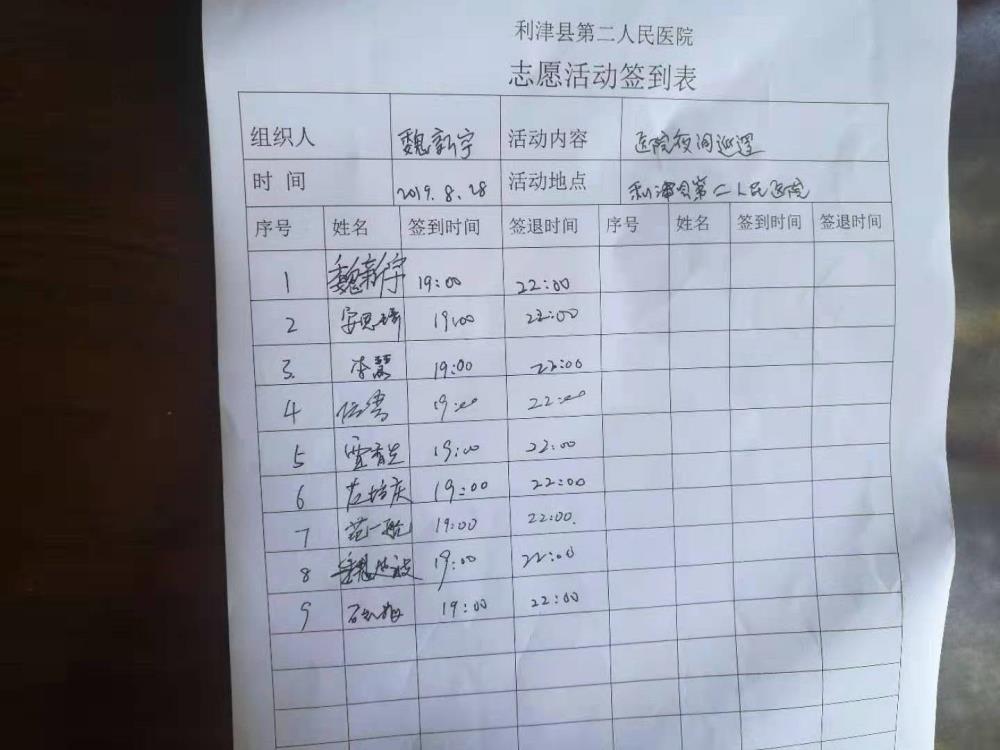 利津县第二人民医院
志愿活动签到表
组织人 魏新宇 活动内容 医院夜间巡逻
时 间 2019.8.28 活动地点 利津县第二人民医院
序号 姓名 签到时间 签退时间 序号 姓名 签到时间 签退时间
1 魏新宇 19:00 22:00
2 19:00 22:00
3 李慧 19:00 22:00
4 任雪 19:00 22:00
5 19:00 22:00
6 19:00 22:00
7 范一 19:00 22:00
8 19:00 22:00
9 19:00 22:00